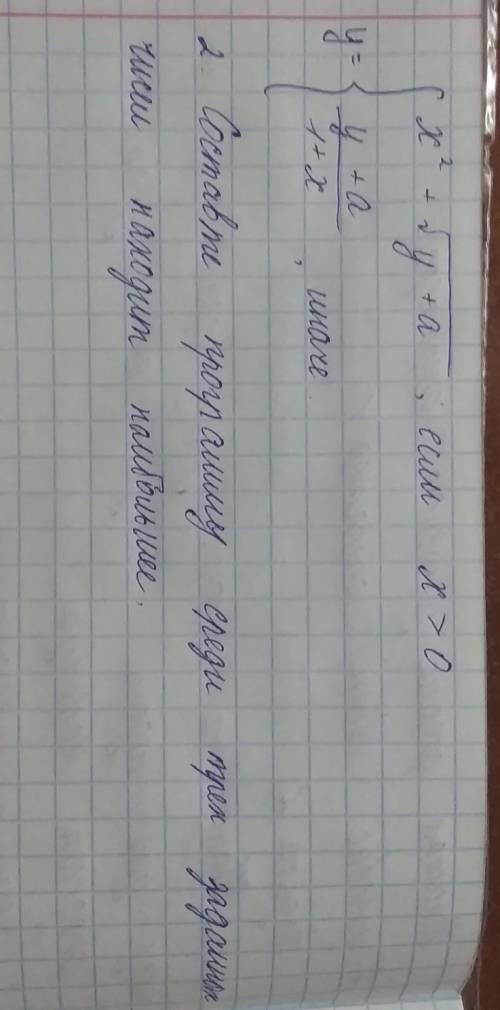 y = { x² + √(y + a) , если x > 0
(y + a)/(1 + x) , иначе.
2. Составте программу среди трех заданных
чисел находит наибольшее.